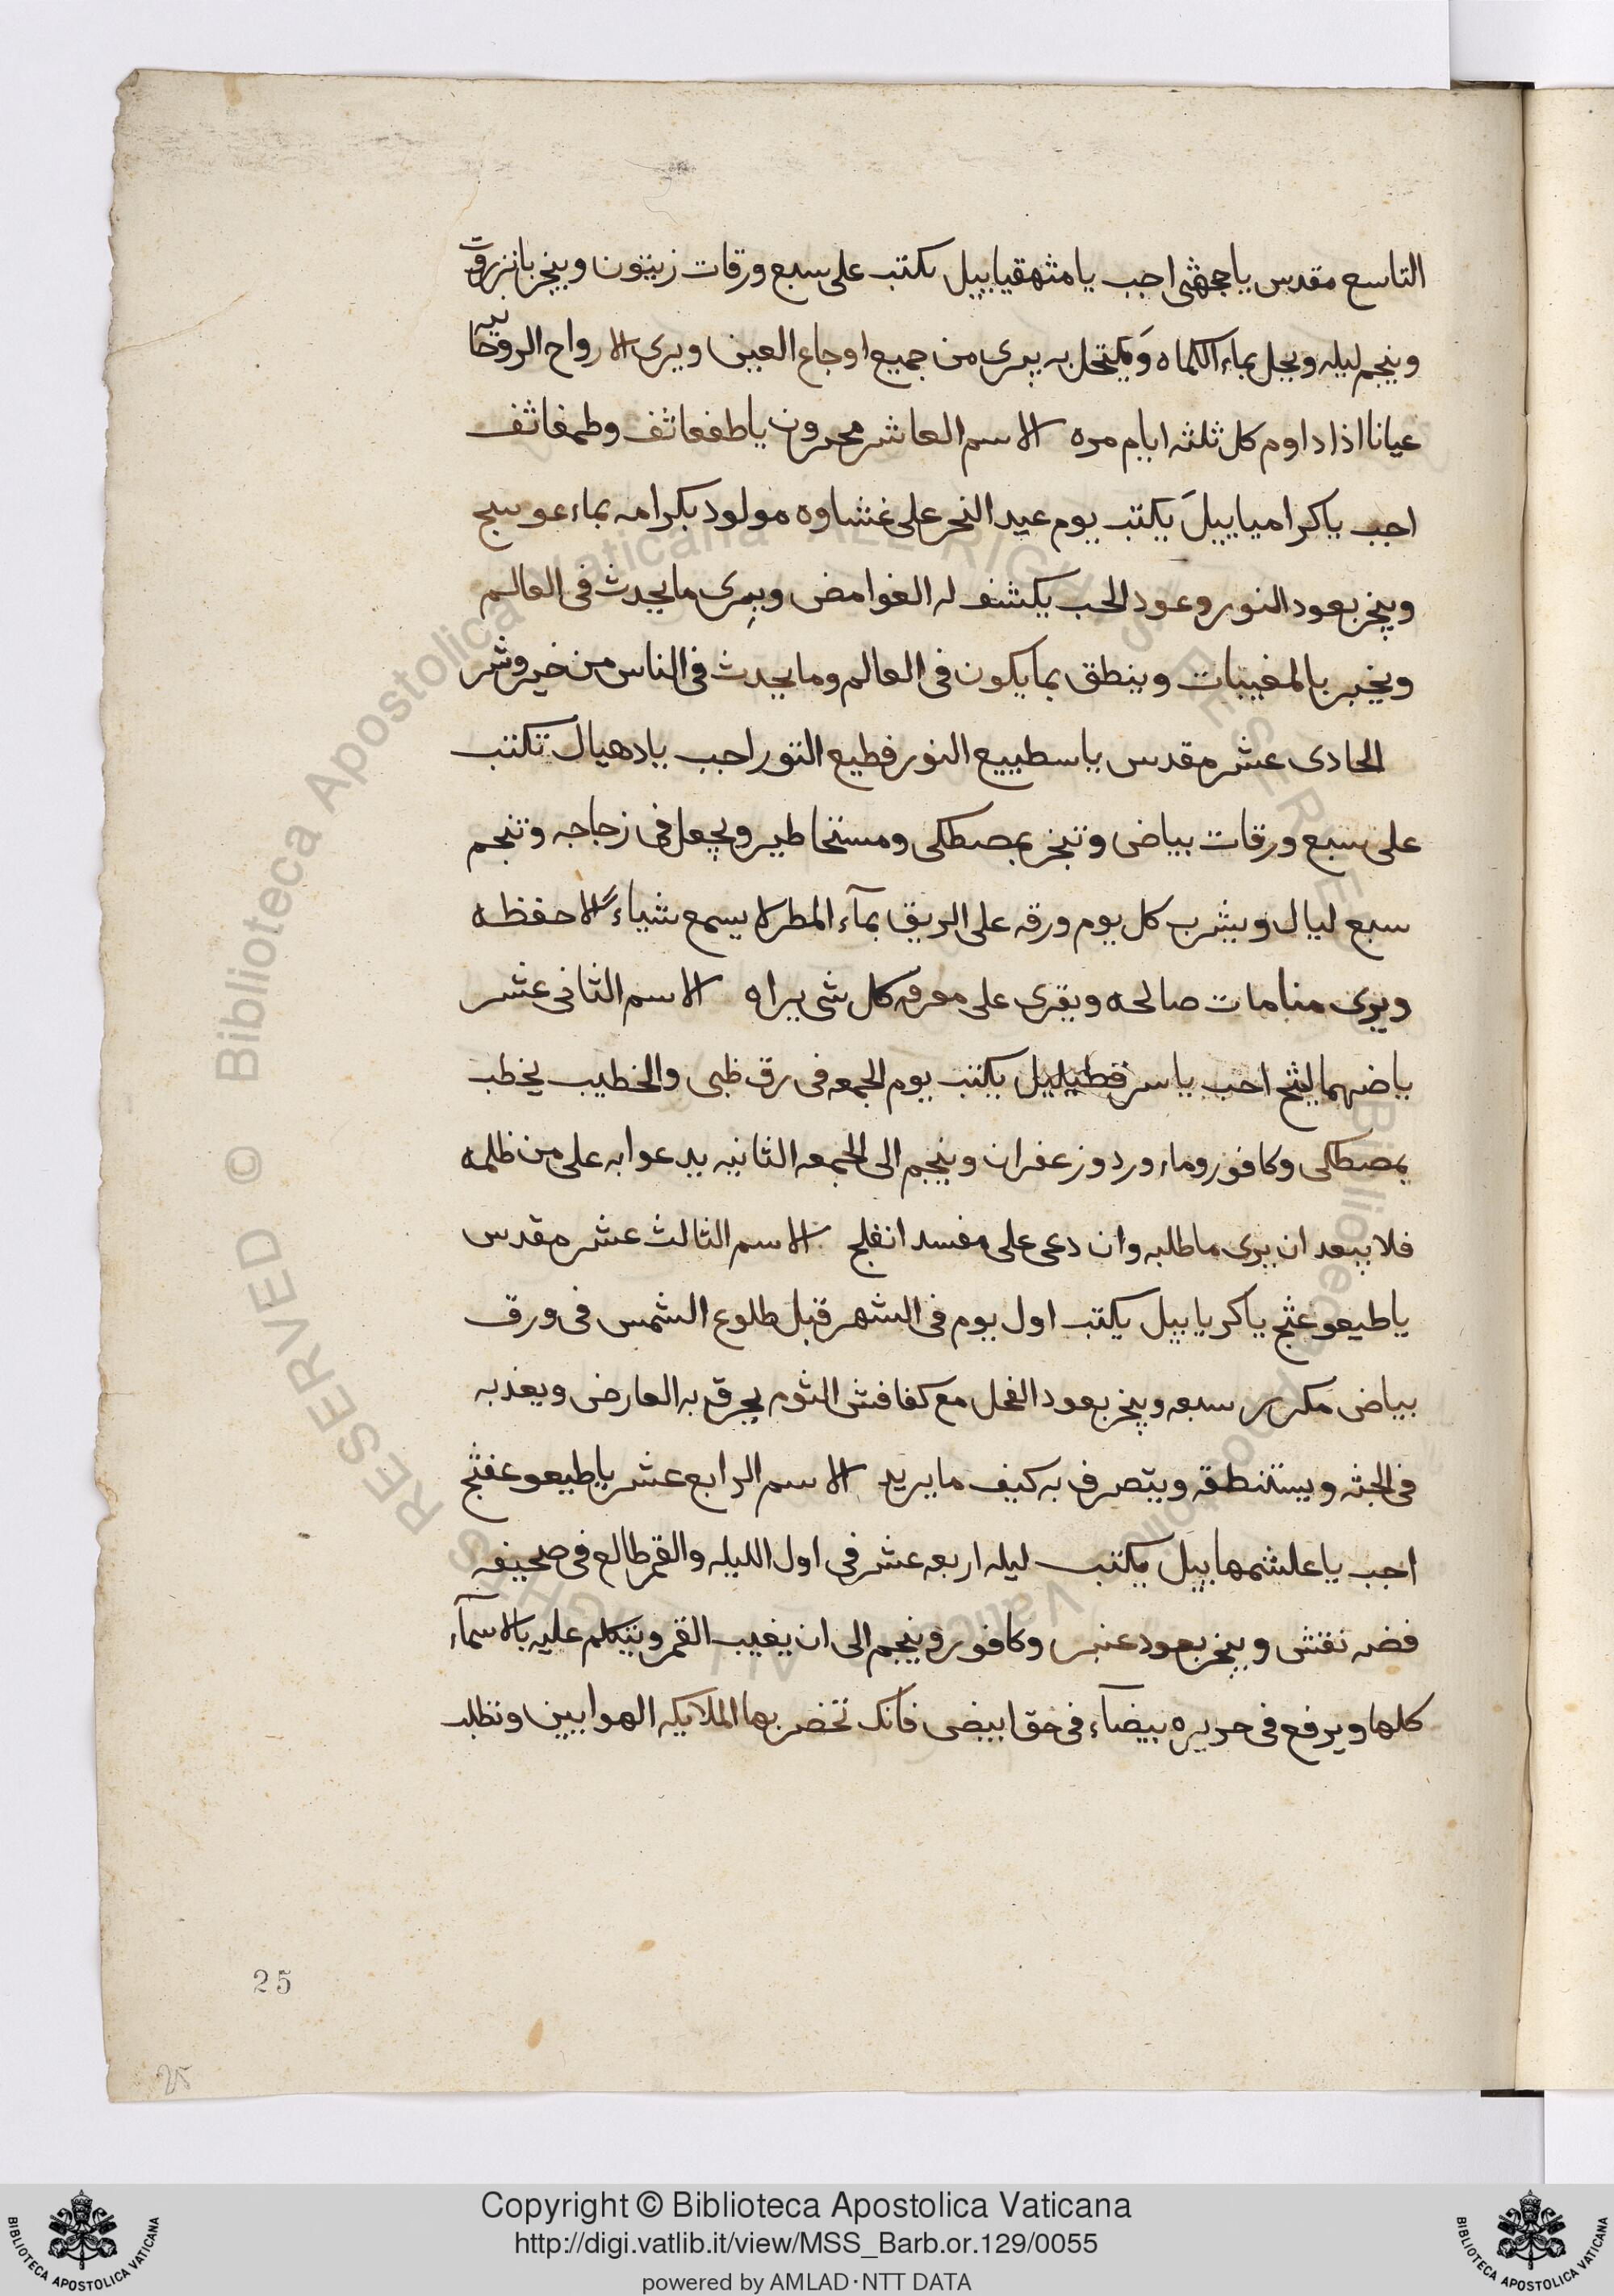 التاسع مقدس ياججهثى اجب يا مثهقياييل يكتب على سبع ورقات زيتون ويبخر بانزروت
وينجم ليله ويحل بماء الكماه وَيكتحل به يبرى من جميع اوجاع العين ويرى الارواح الروحانيه
عيانا اذا داوم كل ثلثه ايام مره الاسم العاشر محرون ياطفعاثف وطمغاثف
اجب ياكرامياييلَ يكتب يوم عيد النحر على غشاوه مولود بكرامه بماء عوسج
ويبخر بعود النور وعود الحب يكشف له الغوامض ويرى مايحدث فى العالم
ويخبر بالمغيبات وينطق بمايكون فى العالم ومايحدث فى الناس من خير وشر
الحادى عشر مقدس ياسطييع النور فطيع النور اجب يادهيال تكتب
على سبع ورقات بياض وتبخر بمصطكى ومستخاطير ويجعل فى زجاجه وتنجم
سبع ليال ويشرب كل يوم ورقه على الريق بمآء المطر لا يسمع شياءً الا حفظه
ويرى منامات صالحه ويقرى على معرفه كل شى يراه الاسم الثانى عشر
ياضهماليثخ احب ياسرقطياييل يكتب يوم الجمعه فى رق ظبى والخطيب يخطب
بمصطكى وكافور وماء ورد وزعفران وينجم الى الجمعه الثانيه يدعوا به على من ظلمه
فلا يبعد ان يرى ما طلبه وان دعى على مفسد انفلج الاسم الثالث عشر مقدس
ياطيعوغثج ياكرياييل يكتب اول يوم فى الشهر قبل طلوع الشمس فى ورق
بياض مكرر سبعه ويبخر بعود الفحل مع كفافش الثوم يحرق به العارض ويعذبه
فى الجثه ويستنطقه ويتصرف به كيف ما يريد الاسم الرابع عشر ياطيعوغفثج
اجب ياعلشمهاييل يكتب ليله اربعه عشر فى اول الليله والقمر طالع فى صحيفه
فضه نقش ويبخر بعود عنبر وكافور وينجم الى ان يغيب القمر ويتكلم عليه بالاسمآء
كلها ويرفع فى حريره بيضآء فى حق ابيض فانك تحضر بها الملايكه الهوايين وتطلب
25
25
Copyright © Biblioteca Apostolica Vaticana
http://digi.vatlib.it/view/MSS_Barb.or.129/0055
powered by AMLAD·NTT DATA